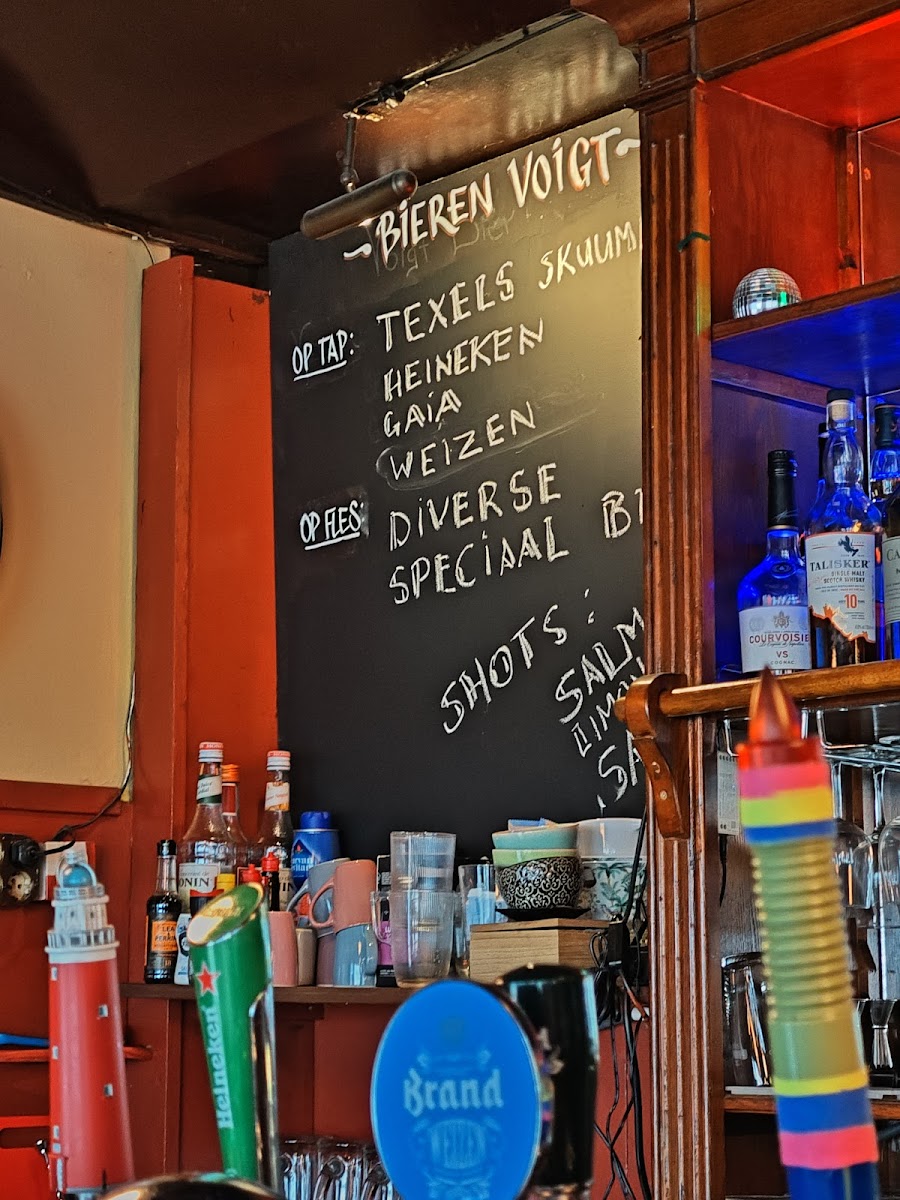 BIEREN VOIGT
OP TAP:
TEXELS SKUUM
HEINEKEN
GAIA
WEIZEN
OP FLES:
DIVERSE
SPECIAAL
SHOTS:
TALISKER
SINGLE MALT
SCOTCH WHISKY
10
COURVOISIER
VS
COGNAC
LEA
PERRINS
Heineken
Brand
WEIZEN